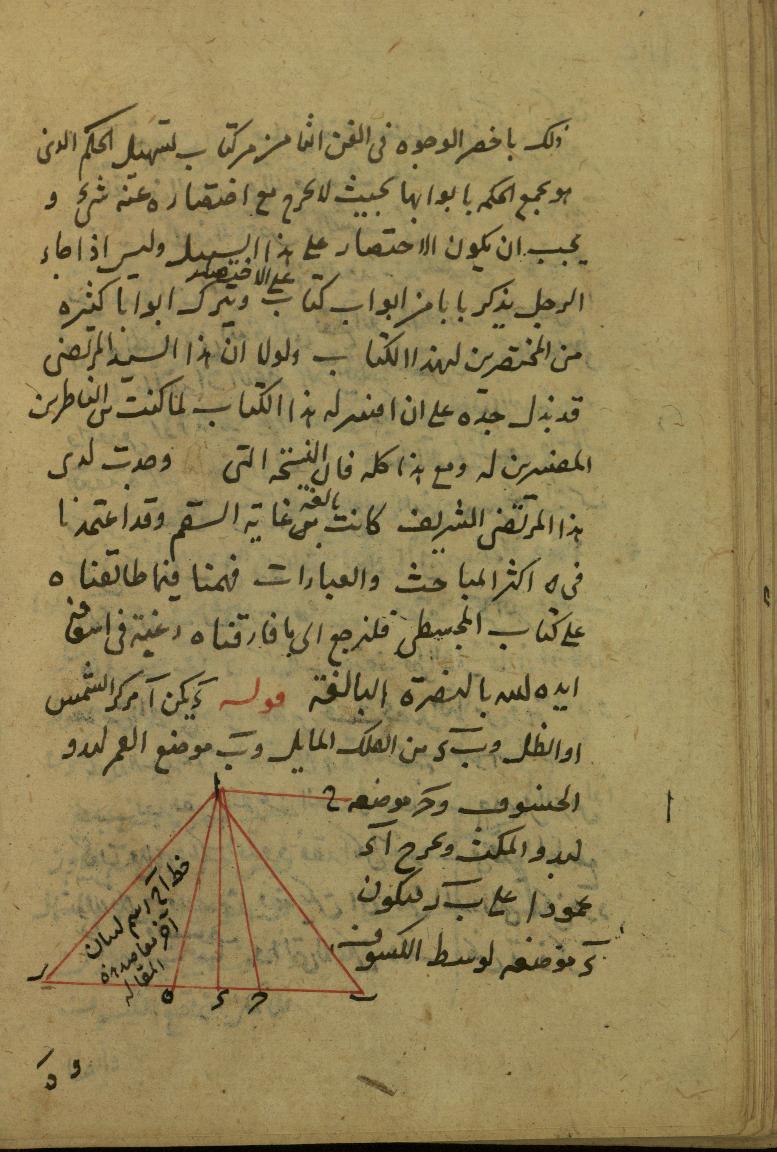 ذلك باخصر الوجوه فى الفن الثامن من كتاب تسهيل الحكم الذى
هو يجمع الحكمة بابوابها بحيث لا يخرج مع اختصاره عنه شئ و
يجب ان يكون الاختصار على هذا السبيل وليس اذا جاء
على الاختصار
الرجل يذكر بابا من ابواب كتاب ويترك ابوابا كثيره
من المختصرين لهذا الكتاب ولولا ان هذا السيد المرتضى
قد بذل جده على ان افسر له هذا الكتاب لما كنت من الناظرين
المفسرين له ومع هذا كله فان النسخة التى وجدت لدى
بالغة
هذا المرتضى الشريف كانت غاية السقم وقد اعتمدنا
فى اكثر المباحث والعبارات فهمنا فيما طالعناه
على كتاب المجسطى فلنرجع الى ما فارقناه رغبة فى
ايده الله بالنصرة البالغة قوله ليكن آ مركز الشمس
او الظل وبء من الفلك المايل وب موضع القمر لبدو
الخسوف وح موضعه
لبدو المكث ونخرج آء
عمودا على ب ر فيكون
ء موضعه لوسط الكسوف
ا
ح
خط آح رسم لبيان
آخر
المقاله
ر
ه
ء
ح
ب